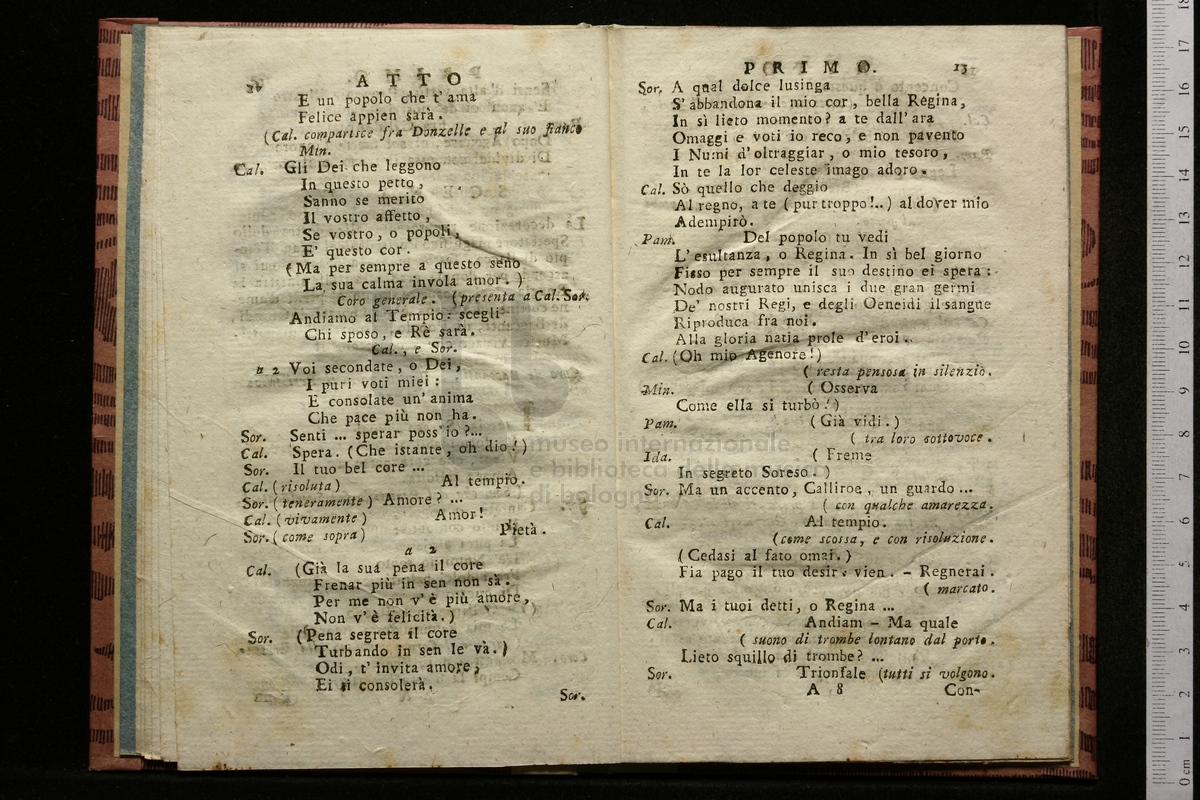 ATTO
E un popolo che t'ama
Felice appien sarà.
(Cal. comparisce fra Donzelle e al suo fianco
Min.
Cal. Gli Dei che leggono
In questo petto,
Sanno se merito
Il vostro affetto,
Se vostro, o popoli,
E' questo cor.
(Ma per sempre a questo seno
La sua calma invola amor.)
Coro generale. (presenta a Cal. Sor.
Andiamo al Tempio: scegli
Chi sposo, e Rè sarà.
Cal., e Sor.
a 2 Voi secondate, o Dei,
I puri voti miei:
E consolate un'anima
Che pace più non ha.
Sor. Senti ... sperar poss'io?...
Cal. Spera. (Che istante, oh dio!)
Sor. Il tuo bel core ...
Cal. (risoluta) Al tempio.
Sor. (teneramente) Amore? ...
Cal. (vivamente) Amor!
Sor. (come sopra) Pietà.
a 2
Cal. (Già la sua pena il core
Frenar più in sen non sà.
Per me non v'è più amore,
Non v'è felicità.)
Sor. (Pena segreta il core
Turbando in sen le và.)
Odi, t'invita amore,
Ei ti consolerà.
Sor.
PRIMO. 13
Sor. A qual dolce lusinga
S'abbandona il mio cor, bella Regina,
In sì lieto momento? a te dall'ara
Omaggi e voti io reco, e non pavento
I Numi d'oltraggiar, o mio tesoro,
In te la lor celeste imago adoro.
Cal. Sò quello che deggio
Al regno, a te (pur troppo!..) al dover mio
Adempirò.
Pam. Del popolo tu vedi
L'esultanza, o Regina. In sì bel giorno
Fisso per sempre il suo destino ei spera:
Nodo augurato unisca i due gran germi
De' nostri Regi, e degli Oeneidi il sangue
Riproduca fra noi.
Alla gloria natia prole d'eroi.
Cal. (Oh mio Agenore!)
(resta pensosa in silenzio.
Min. (Osserva
Come ella si turbò!)
Pam. (Già vidi.)
(tra loro sottovoce.
Ida. (Freme
In segreto Soreso.)
Sor. Ma un accento, Calliroe, un guardo ...
(con qualche amarezza.
Cal. Al tempio.
(come scossa, e con risoluzione.
(Cedasi al fato omai.)
Fia pago il tuo desir: vien. - Regnerai.
(marcato.
Sor. Ma i tuoi detti, o Regina ...
Cal. Andiam - Ma quale
(suono di trombe lontano dal porto.
Lieto squillo di trombe? ...
Sor. Trionfale (tutti si volgono.
A 8 Con-
museo internazionale
e biblioteca della
di bologna